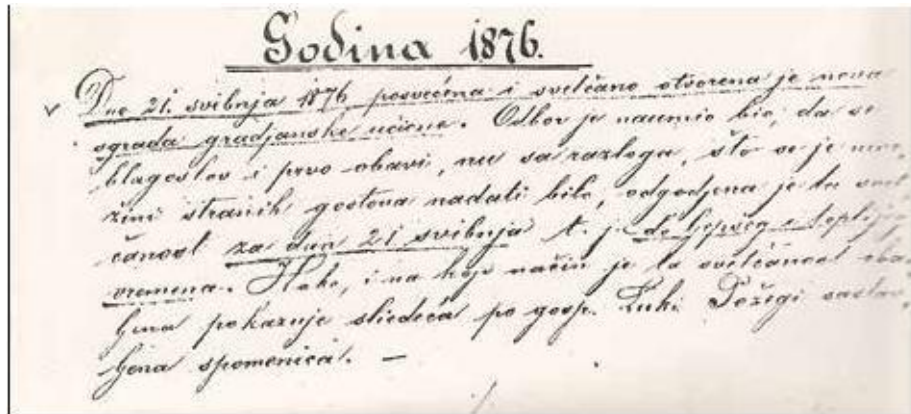 Godina 1876.
Dne 21. svibnja 1876 posvećena i svetčano otvorena je nova
sgrada gradjanske učione. Odbor je naumio bio, da se
blagoslov i prvo obavi, nu sa razloga, što se je
žini stranih gostova nadati bilo, odgodjena je ta svet
čanost za dan 21 svibnja t. j. do ljepšeg i toplijeg
vremena. Kako, i na koji način je ta svetčanost oba
ljena pokazuje sliedeća po gosp. Luki Požegi sastav
ljena spomenica. —